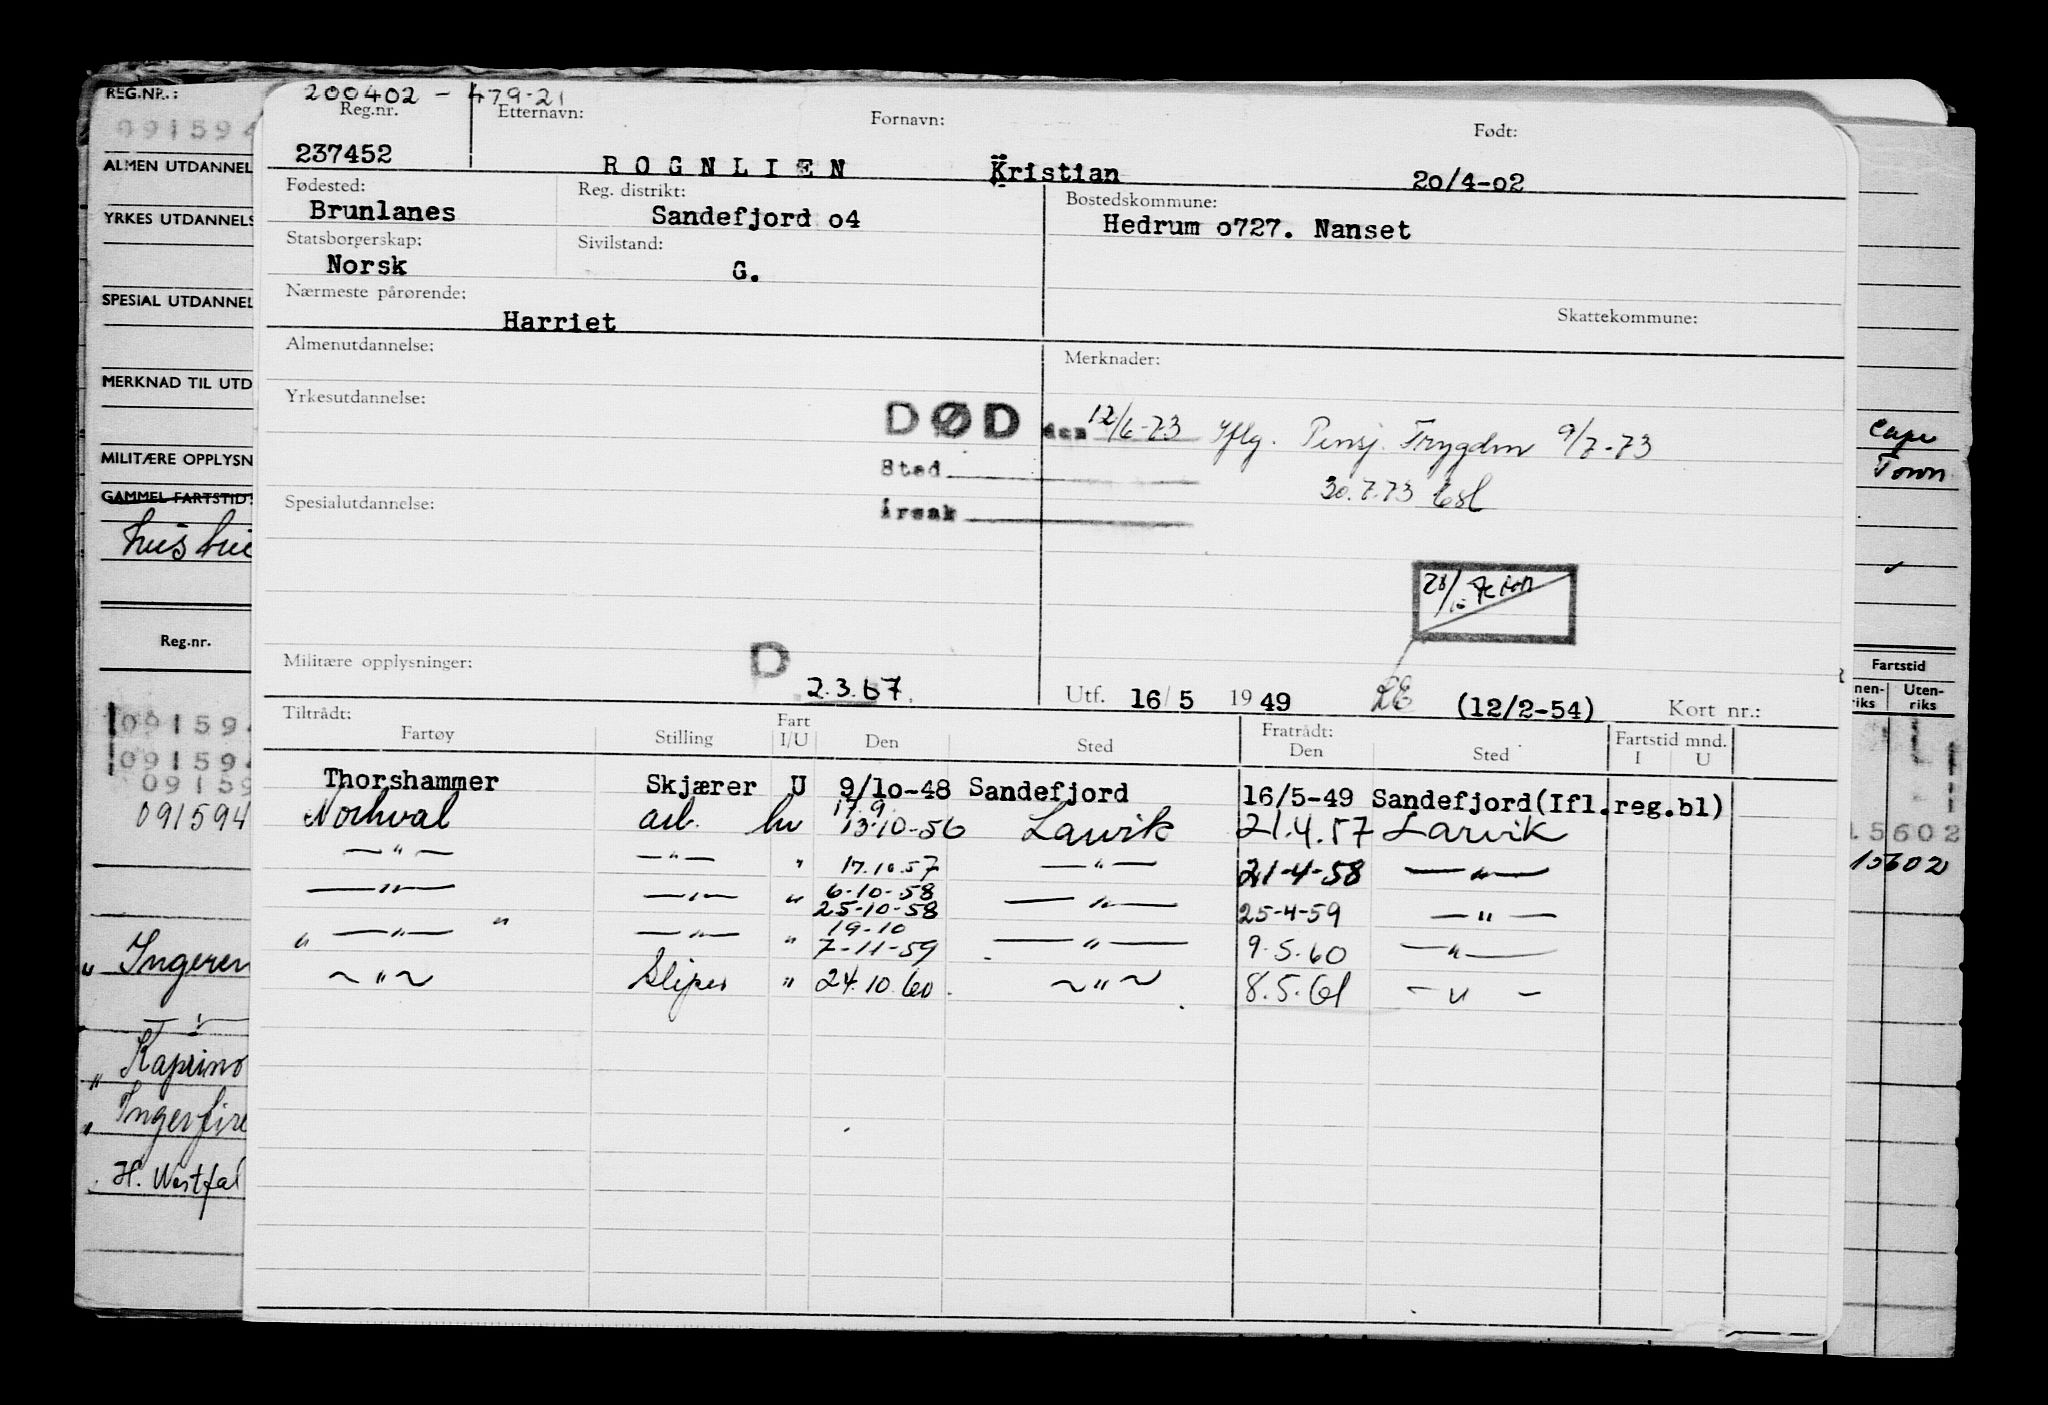 200402 - 479-21
Reg.nr. Etternavn: Fornavn: Født:
237452 ROGNLIEN Kristian 20/4-02
Fødested: Reg. distrikt: Bostedskommune:
Brunlanes Sandefjord o4 Hedrum o727. Nanset
Statsborgerskap: Sivilstand:
Norsk G.
Nærmeste pårørende: Skattekommune:
Harriet
Almenutdannelse: Merknader:
Yrkesutdannelse:
DØD den 12/6-73 Iflg. Pensj. Trygden 9/7-73
Sted
30.7.73
Spesialutdannelse: Årsak
Militære opplysninger: D
2.3.67. Utf. 16/5 1949 (12/2-54) Kort nr.:
Tiltrådt: Fratrådt: Fartstid mnd.
Fartøy Stilling Fart I/U Den Sted Den Sted I U
Thorshammer Skjærer U 9/10-48 Sandefjord 16/5-49 Sandefjord(Ifl.reg.bl)
17.9
Norhval arb. hv 13.10-56 Larvik 21.4.57 Larvik
— " — — " — " 17.10.57 — " — 21-4-58 — " —
6-10-58
— " — — " — " 25-10-58 — " — 25-4-59 — " —
19-10
" — " — " — " — " 7-11-59 — " — 9.5.60 — " —
~ " ~ Sliper " 24.10.60 ~ " ~ 8.5.61 - " -
REG.NR.:
091594
ALMEN UTDANNEL
YRKES UTDANNELS
SPESIAL UTDANNEL
MERKNAD TIL UTD
MILITÆRE OPPLYSN
GAMMEL FARTSTID:
Reg.nr.
091594
091594
09159
091594
" Ingeren
Kaprino
" Ingerfire
H. Westfal
Cape
Town
Fartstid
nen-riks Uten-riks
.5602
15602